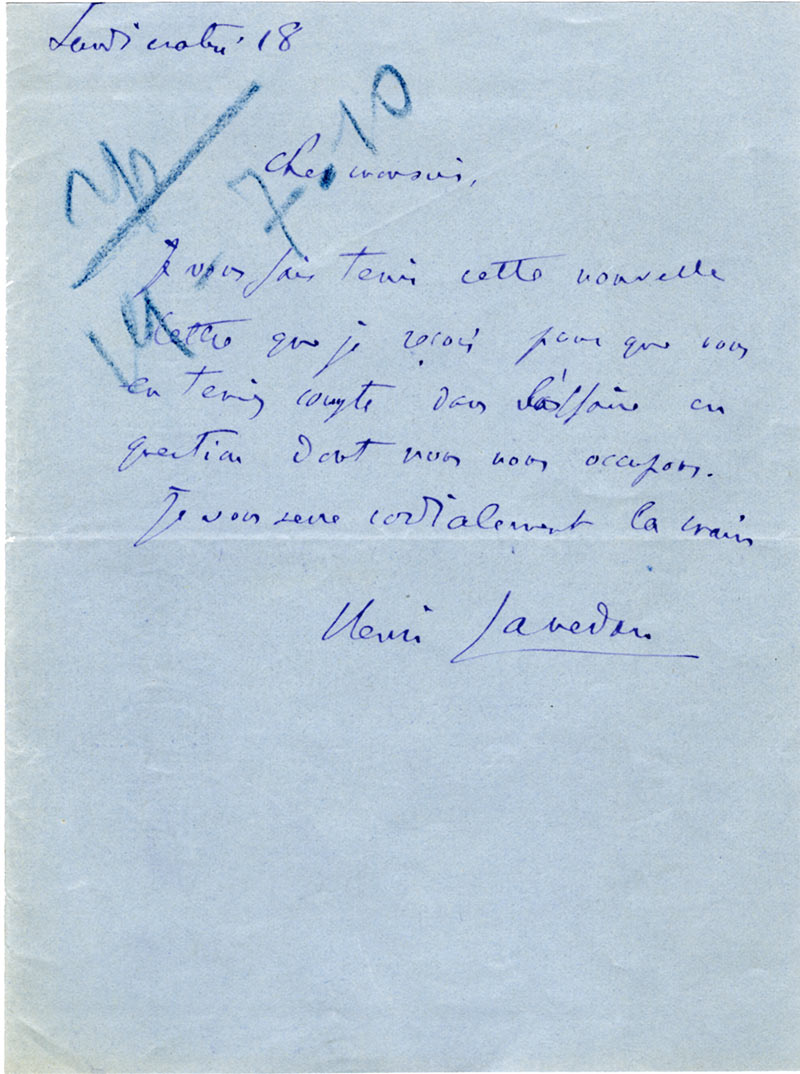 Lundi matin 18
Cher monsieur,
Je vous fais tenir cette nouvelle
lettre que je reçois pour que vous
en teniez compte dans l'affaire en
question dont nous nous occupons.
Je vous serre cordialement la main
Henri Lavedan
7.10